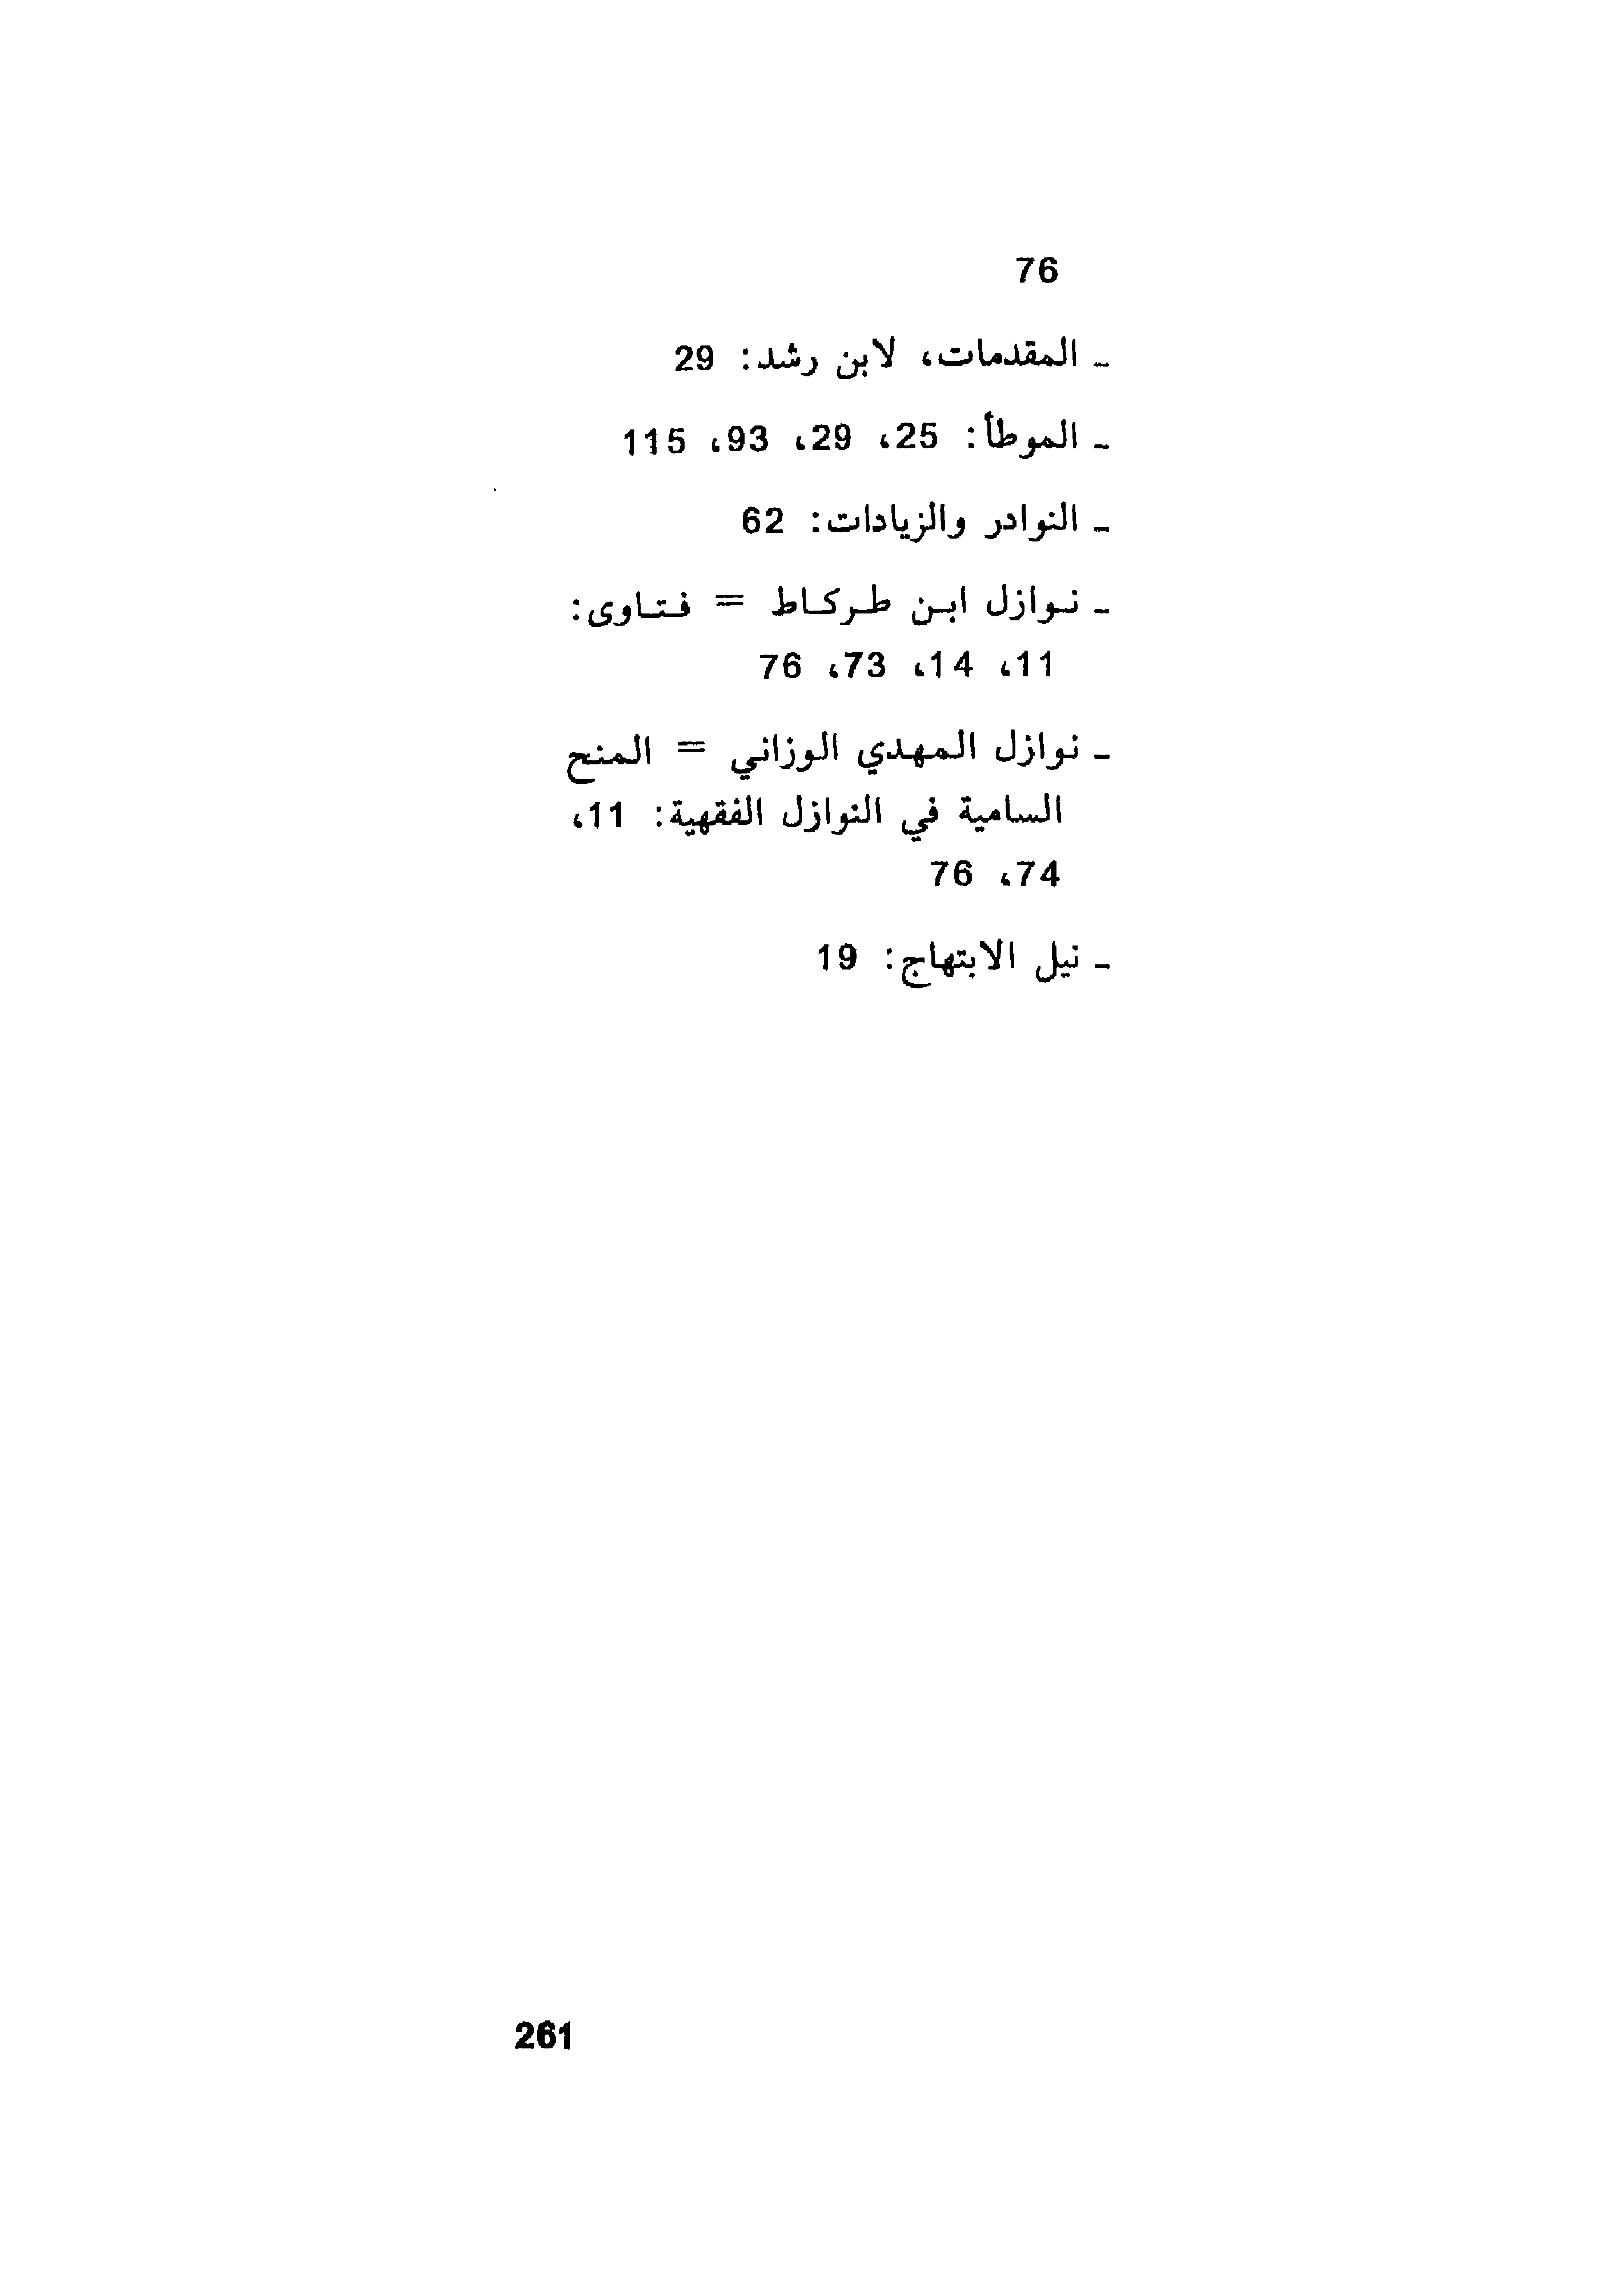 76
ـ المقدمات، لابن رشد: 29
ـ الموطأ: 25، 29، 93، 115
ـ النوادر والزيادات: 62
ـ نوازل ابن طركاط = فتاوى:
11، 14، 73، 76
ـ نوازل المهدي الوزاني = المنح
السامية في النوازل الفقهية: 11،
74، 76
ـ نيل الابتهاج: 19
261